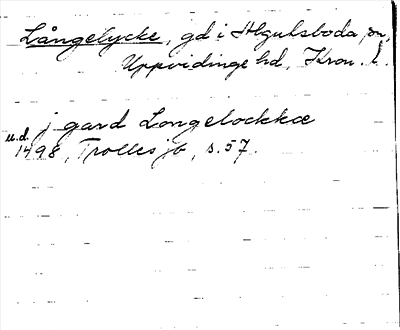 Långelycke, gd i Älgultsboda sn,
Uppvidinge hd, Kron. l.
j gard Longelockkæ
u.d. 1498, Trolles jb, s. 57.